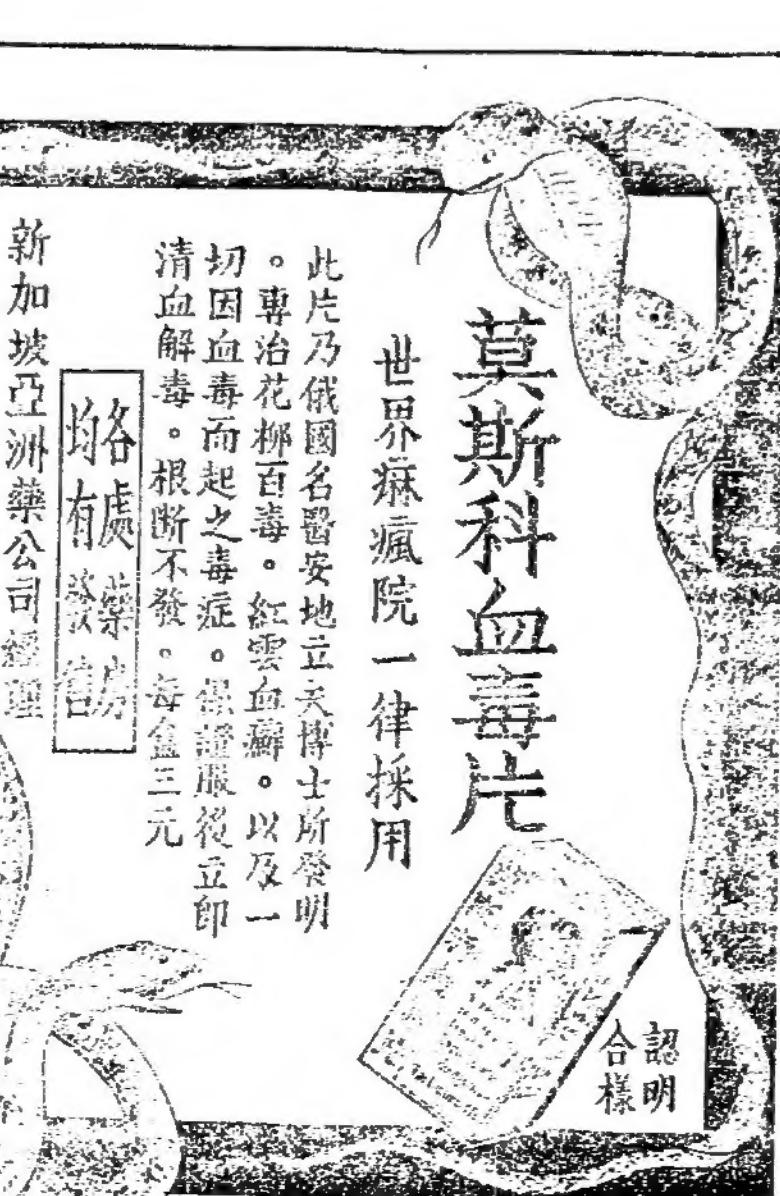 莫斯科血毒片
世界痳瘋院一律採用
此片乃俄國名醫安地立夫博士所發明
。專治花柳百毒。紅雲血癬。以及一
切因血毒而起之毒症。保證服後立卽
清血解毒。根斷不發。每盒三元
各處藥房
均有發售
新加坡亞洲藥公司經理
認明
合樣